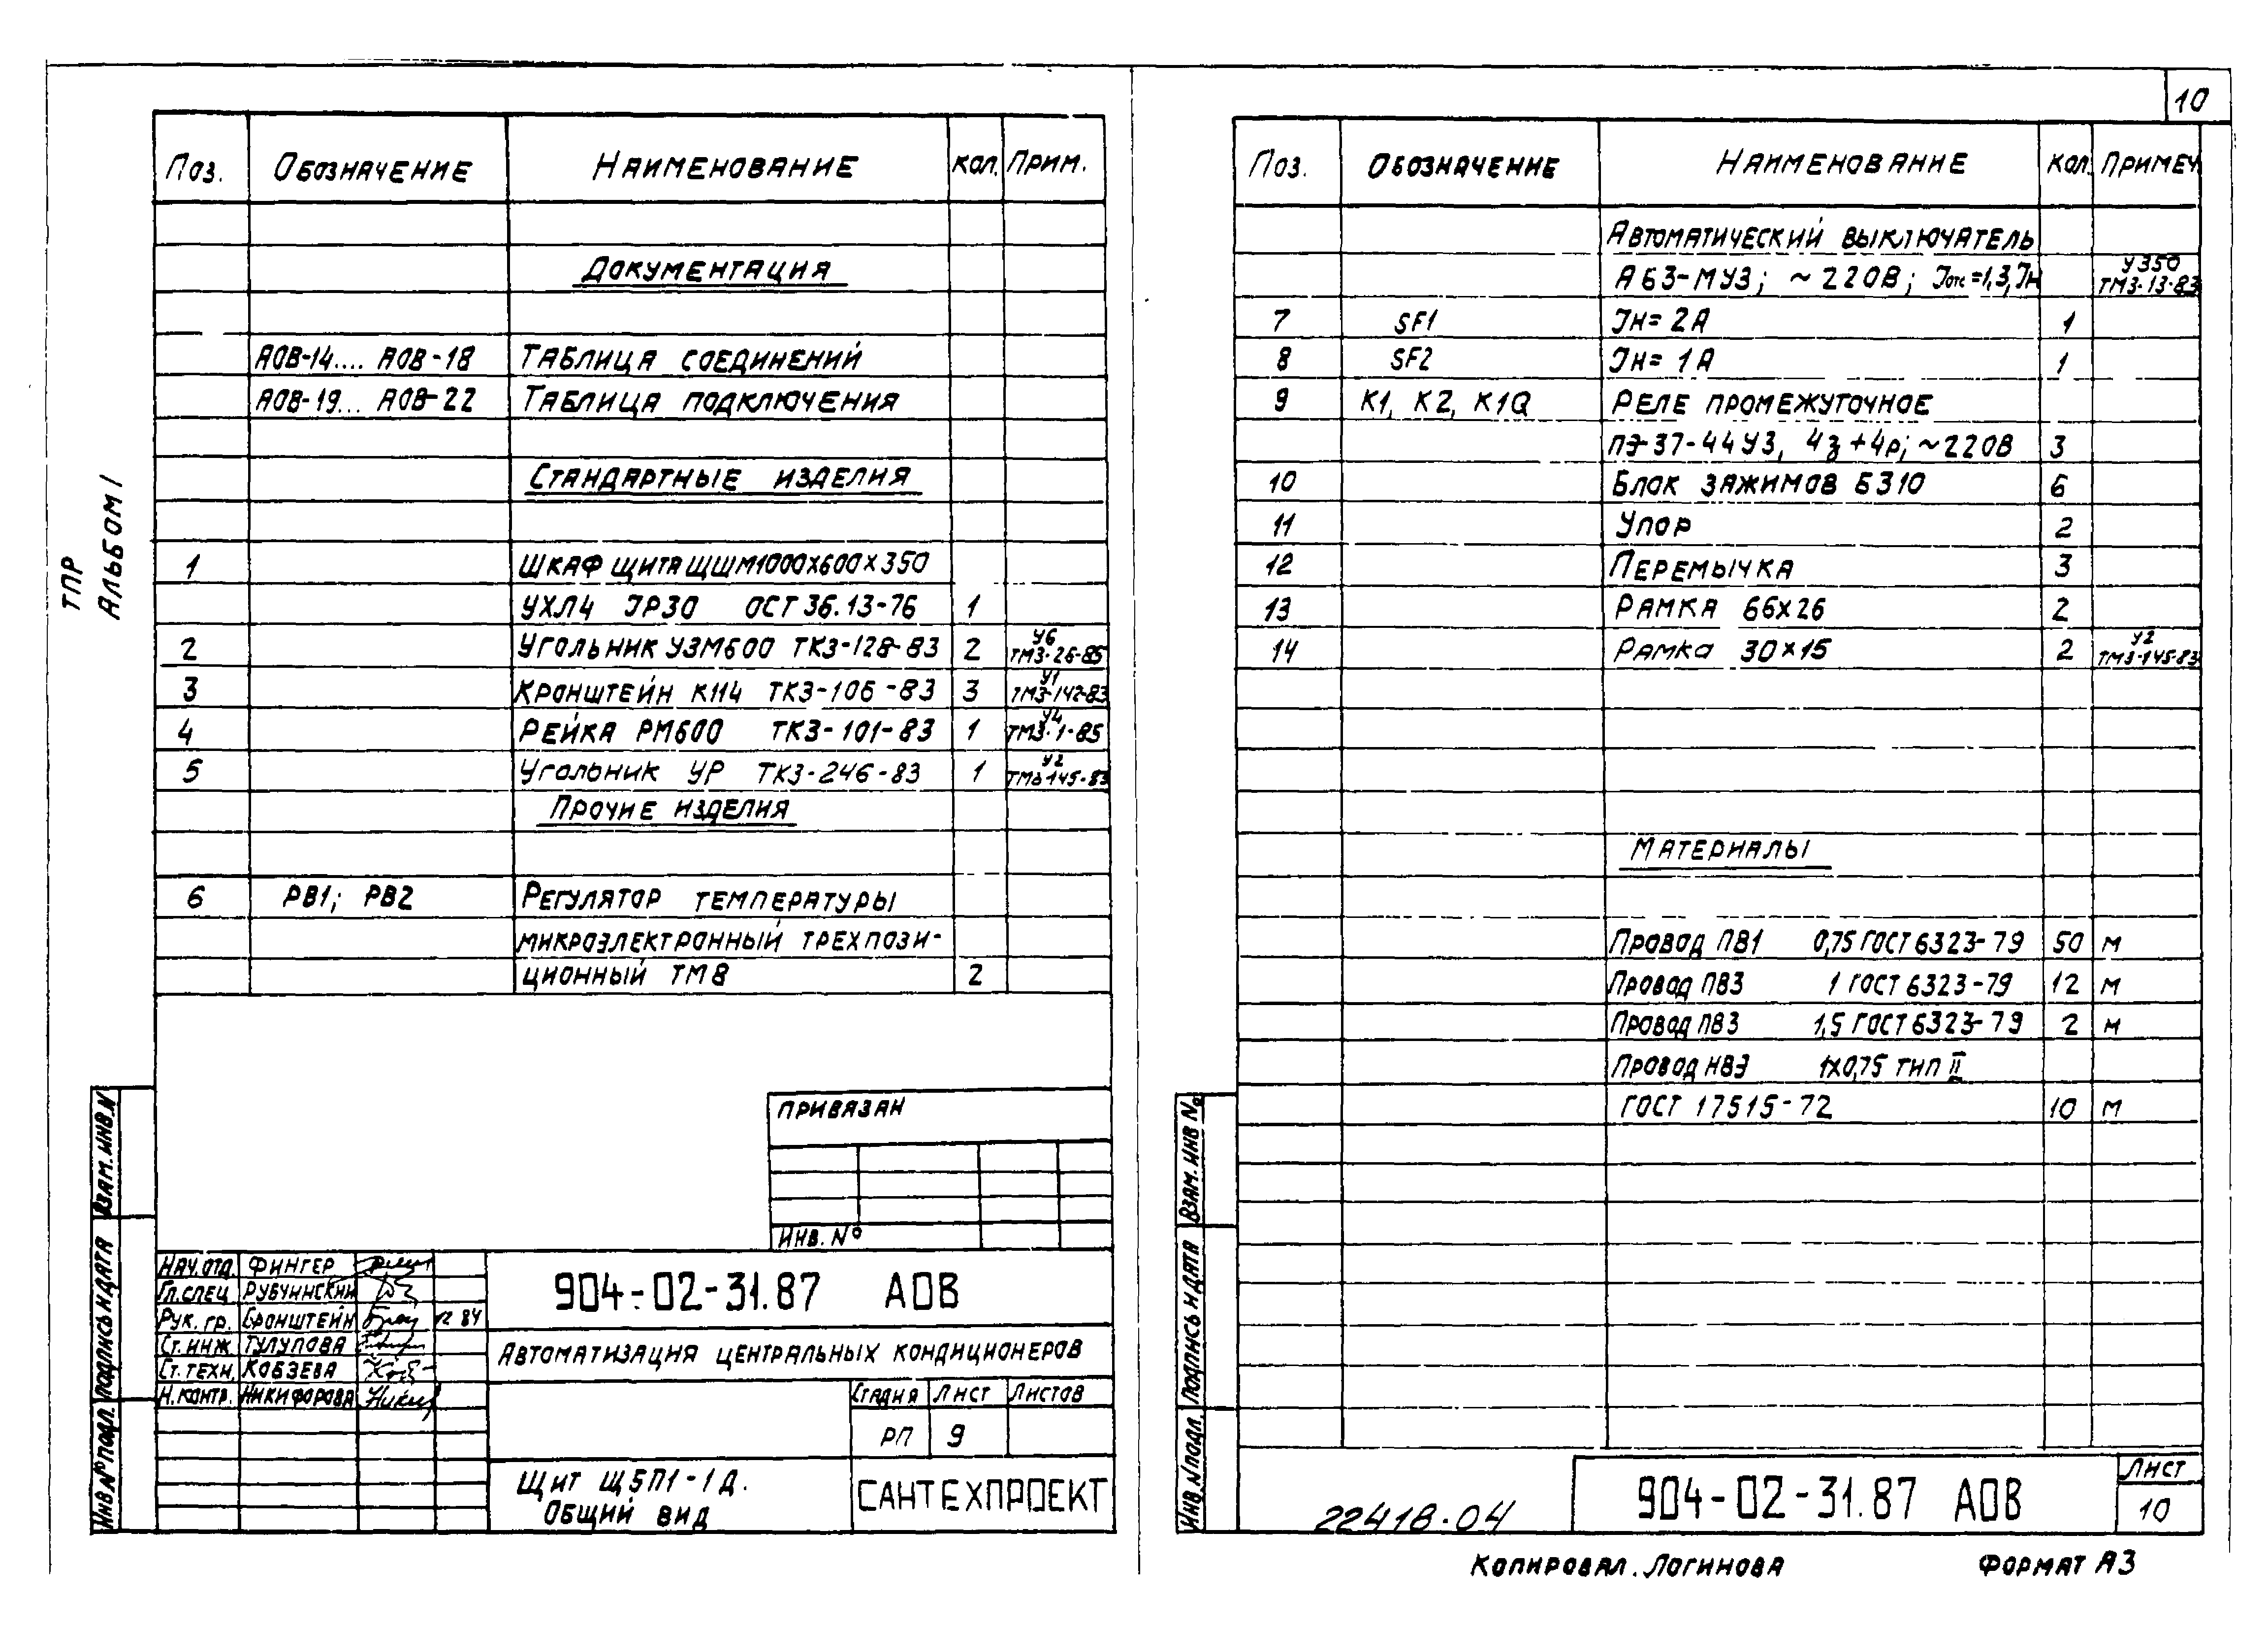 ТПР
АЛЬБОМ I
Поз. Обозначение Наименование Кол. Прим.
Документация
АОВ-14.... АОВ-18 Таблица соединений
АОВ-19... АОВ-22 Таблица подключения
Стандартные изделия
1 Шкаф щита ЩШМ1000х600х350
УХЛ4 JP30 ОСТ 36.13-76 1
2 Угольник УЗМ600 ТК3-128-83 2 У6 ТМ3-26-85
3 Кронштейн К114 ТК3-106-83 3 У1 ТМ3-142-83
4 Рейка РМ600 ТК3-101-83 1 У4 ТМ3-1-85
5 Угольник УР ТК3-246-83 1 У2 ТМ3-145-83
Прочие изделия
6 РВ1; РВ2 Регулятор температуры
микроэлектронный трехпози-
ционный ТМ8 2
Привязан
Инв. №
Нач.отд. Фингер
Гл.спец. Рубчинский
Рук. гр. Бронштейн 12 84
Ст.инж. Тулупова
Ст.техн. Кобзева
Н.контр. Никифорова
904-02-31.87 АОВ
Автоматизация центральных кондиционеров
Стадия Лист Листов
РП 9
Щит Щ5П1-1Д.
Общий вид
САНТЕХПРОЕКТ
Взам.инв.№
Подпись и дата
Инв.№ подл.
10
Поз. Обозначение Наименование Кол. Примеч.
Автоматический выключатель
А63-МУ3; ~220В; Jотс=1,3Jн У350 ТМ3-13-83
7 SF1 Jн=2А 1
8 SF2 Jн=1А 1
9 К1, К2, К1Q Реле промежуточное
ПЭ-37-44У3, 4з+4р; ~220В 3
10 Блок зажимов БЗ10 6
11 Упор 2
12 Перемычка 3
13 Рамка 66х26 2
14 Рамка 30х15 2 У2 ТМ3-145-83
Материалы
Провод ПВ1 0,75 ГОСТ 6323-79 50 м
Провод ПВ3 1 ГОСТ 6323-79 12 м
Провод ПВ3 1,5 ГОСТ 6323-79 2 м
Провод НВЭ 1х0,75 тип II
ГОСТ 17515-72 10 м
Взам.инв №
Подпись и дата
Инв.№ подл.
22418-04
904-02-31.87 АОВ
Лист
10
Копировал. Логинова Формат А3